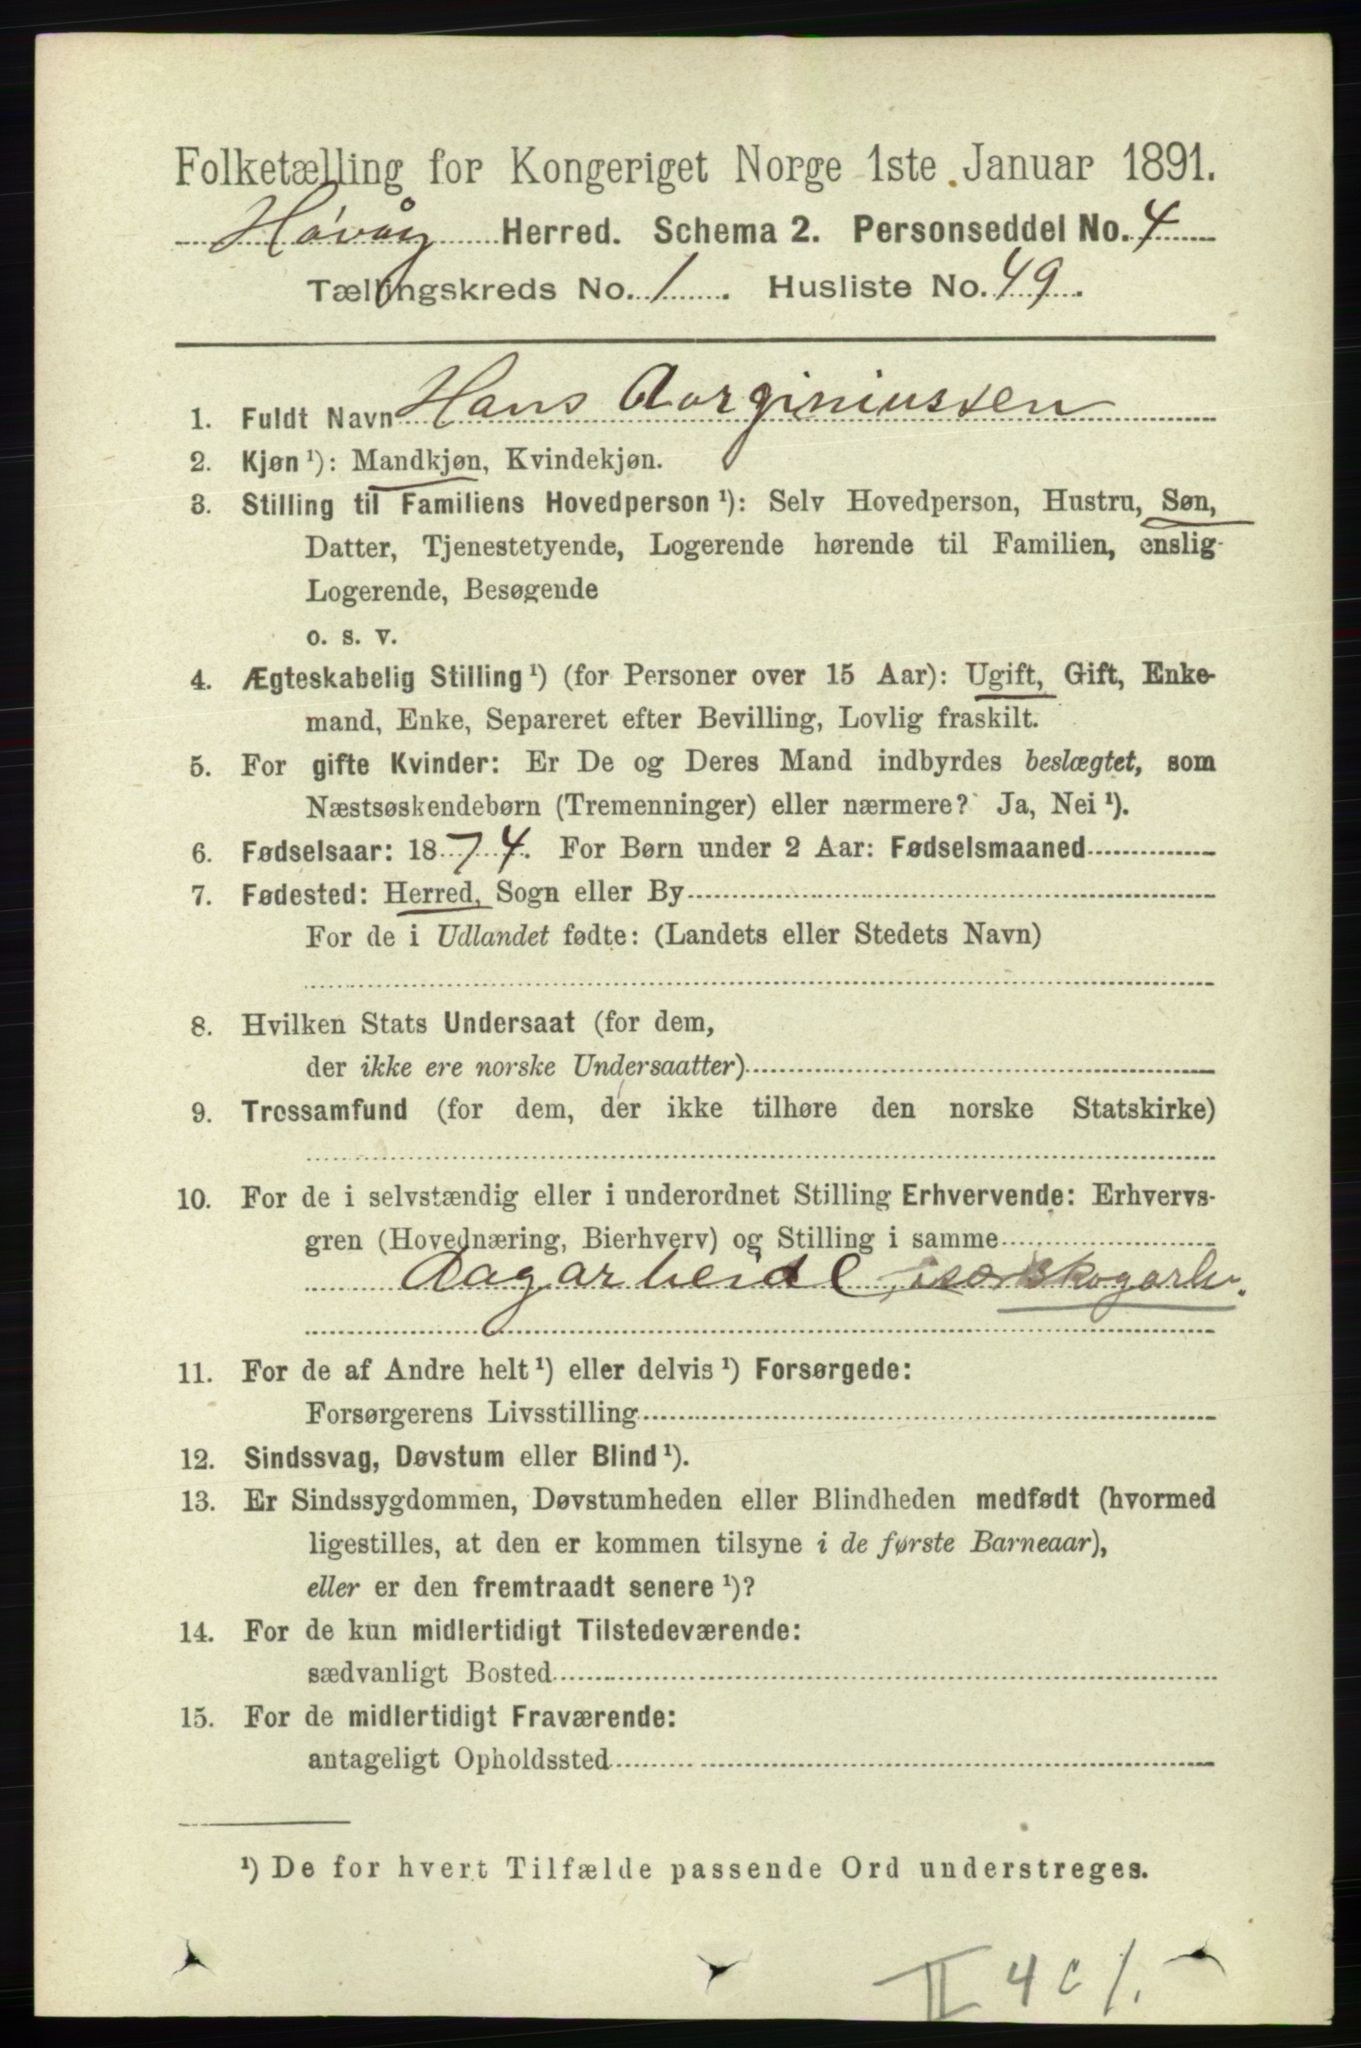 Folketælling for Kongeriget Norge 1ste Januar 1891.
Høvåg Herred. Schema 2. Personseddel No. 4
Tællingskreds No. 1. Husliste No. 49.
1. Fuldt Navn Hans Aorginiussen
2. Kjøn ¹): Mandkjøn, Kvindekjøn.
3. Stilling til Familiens Hovedperson ¹): Selv Hovedperson, Hustru, Søn,
Datter, Tjenestetyende, Logerende hørende til Familien, enslig
Logerende, Besøgende
o. s. v.
4. Ægteskabelig Stilling ¹) (for Personer over 15 Aar): Ugift, Gift, Enke-
mand, Enke, Separeret efter Bevilling, Lovlig fraskilt.
5. For gifte Kvinder: Er De og Deres Mand indbyrdes beslægtet, som
Næstsøskendebørn (Tremenninger) eller nærmere? Ja, Nei ¹).
6. Fødselsaar: 1874. For Børn under 2 Aar: Fødselsmaaned
7. Fødested: Herred, Sogn eller By
For de i Udlandet fødte: (Landets eller Stedets Navn)
8. Hvilken Stats Undersaat (for dem,
der ikke ere norske Undersaatter)
9. Trossamfund (for dem, der ikke tilhøre den norske Statskirke)
10. For de i selvstændig eller i underordnet Stilling Erhvervende: Erhvervs-
gren (Hovednæring, Bierhverv) og Stilling i samme
Aagarbeide, især skogarb.
11. For de af Andre helt ¹) eller delvis ¹) Forsørgede:
Forsørgerens Livsstilling
12. Sindssvag, Døvstum eller Blind ¹).
13. Er Sindssygdommen, Døvstumheden eller Blindheden medfødt (hvormed
ligestilles, at den er kommen tilsyne i de første Barneaar),
eller er den fremtraadt senere ¹)?
14. For de kun midlertidigt Tilstedeværende:
sædvanligt Bosted
15. For de midlertidigt Fraværende:
antageligt Opholdssted
¹) De for hvert Tilfælde passende Ord understreges.
II 4 c 1.